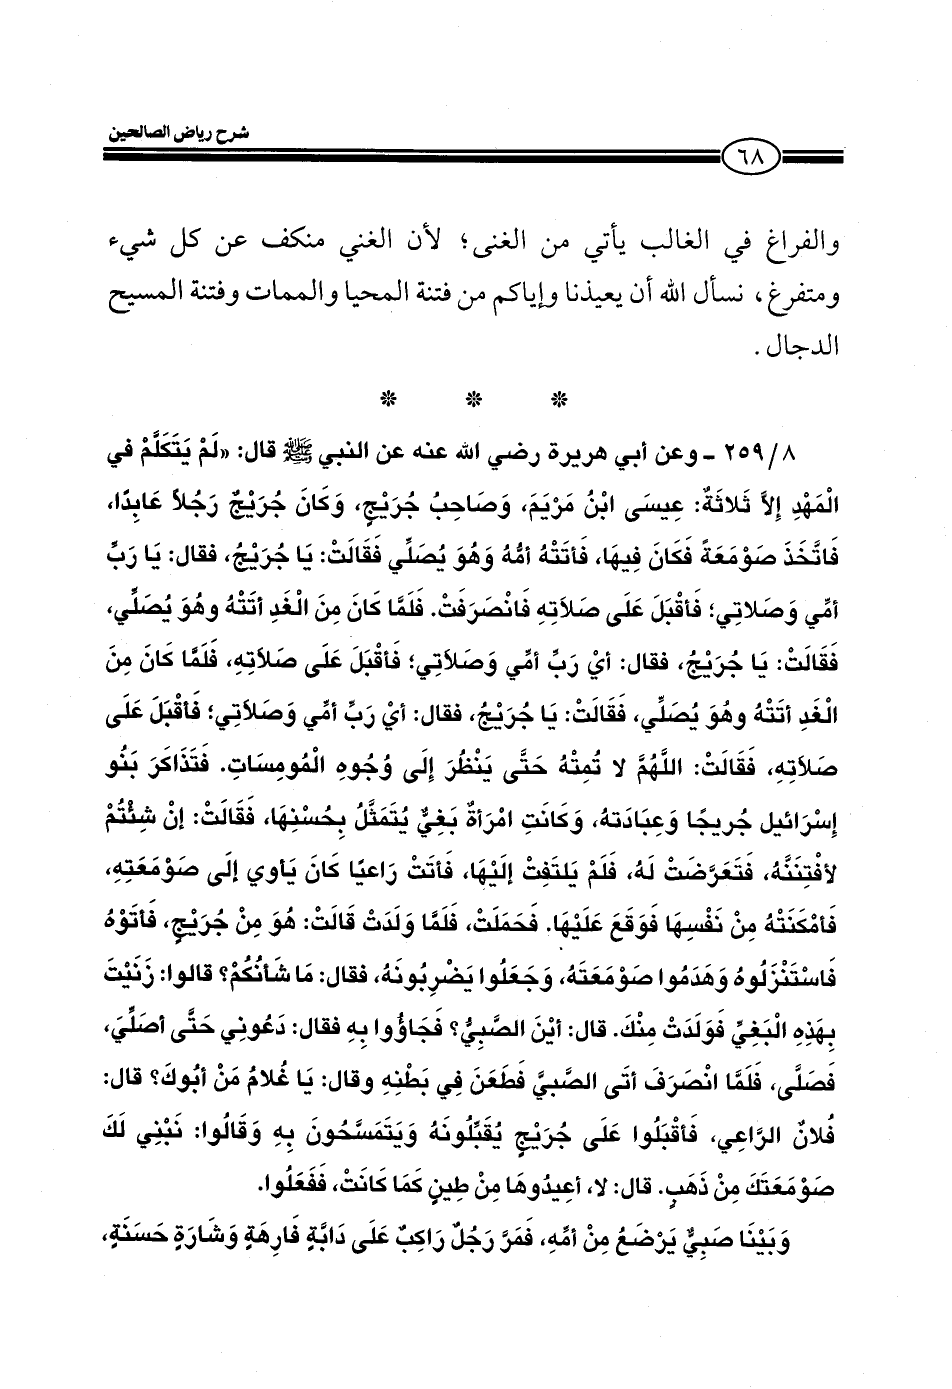 شرح رياض الصالحين
٦٨
والفراغ في الغالب يأتي من الغنى؛ لأن الغني منكف عن كل شيء
ومتفرغ، نسأل الله أن يعيذنا وإياكم من فتنة المحيا والممات وفتنة المسيح
الدجال.
* * *
٢٥٩/٨ ـ وعن أبي هريرة رضي الله عنه عن النبي ﷺ قال: «لَمْ يَتَكَلَّمْ في
الْمَهْدِ إِلاَّ ثَلاثَةٌ: عِيسَى ابْنُ مَرْيَمَ، وَصَاحِبُ جُرَيْجٍ، وَكَانَ جُرَيْجٌ رَجُلاً عَابِدًا،
فَاتَّخَذَ صَوْمَعَةً فَكَانَ فِيهَا، فَأتَتْهُ أمُّهُ وَهُوَ يُصَلِّي فَقَالَتْ: يَا جُرَيْجُ، فقال: يَا رَبِّ
أمِّي وَصَلاتِي؛ فَأقْبَلَ عَلَى صَلاَتِهِ فَانْصَرَفَتْ. فَلَمَّا كَانَ مِنَ الْغَدِ أتَتْهُ وهُوَ يُصَلِّي،
فَقَالَتْ: يَا جُرَيْجُ، فقال: أيْ رَبِّ أمِّي وَصَلاَتِي؛ فَأقْبَلَ عَلَى صَلاَتِهِ، فَلَمَّا كَانَ مِنَ
الْغَدِ أتَتْهُ وهُوَ يُصَلِّي، فَقَالَتْ: يَا جُرَيْجُ، فقال: أيْ رَبِّ أمِّي وَصَلاَتِي؛ فَأقْبَلَ عَلَى
صَلاَتِهِ، فَقَالَتْ: اللَّهُمَّ لا تُمِتْهُ حَتَّى يَنْظُرَ إلَى وُجُوهِ الْمُومِسَاتِ. فَتَذَاكَرَ بَنُو
إسْرَائيل جُريجًا وَعِبَادَتهُ، وَكَانَتِ امْرَأةٌ بَغِيٌّ يُتَمَثَّلُ بِحُسْنِهَا، فَقَالَتْ: إنْ شِئْتُمْ
لأفْتِنَنَّهُ، فَتَعَرَّضَتْ لَهُ، فَلَمْ يَلتَفِتْ إلَيْهَا، فَأتَتْ رَاعيًا كَانَ يَأوي إلَى صَوْمَعَتِهِ،
فَأمْكَنَتْهُ مِنْ نَفْسِهَا فَوَقَعَ عَلَيْهَا. فَحَمَلَتْ، فَلَمَّا وَلَدَتْ قَالَتْ: هُوَ مِنْ جُرَيْجٍ، فَأتَوْهُ
فَاسْتَنْزَلُوهُ وَهَدَمُوا صَوْمَعَتَهُ، وَجَعَلُوا يَضْرِبُونَهُ، فقال: مَا شَأنُكُمْ؟ قالوا: زَنَيْتَ
بِهَذِهِ الْبَغِيِّ فَوَلَدَتْ مِنْكَ. قال: أيْنَ الصَّبِيُّ؟ فَجَاؤُوا بِهِ فقال: دَعُونِي حَتَّى أصَلِّيَ،
فَصَلَّى، فَلَمَّا انْصَرَفَ أتَى الصَّبِيَّ فَطَعَنَ فِي بَطْنِهِ وقال: يَا غُلامُ مَنْ أبُوكَ؟ قال:
فُلانٌ الرَّاعِي، فَأقْبَلُوا عَلَى جُرَيْجٍ يُقَبِّلُونَهُ وَيَتَمَسَّحُونَ بِهِ وَقَالُوا: نَبْنِي لَكَ
صَوْمَعَتَكَ مِنْ ذَهَبٍ. قال: لا، أعِيدُوهَا مِنْ طِينٍ كَمَا كَانَتْ، فَفَعَلُوا.
وَبَيْنَا صَبِيٌّ يَرْضَعُ مِنْ أمِّهِ، فَمَرَّ رَجُلٌ رَاكِبٌ عَلَى دَابَّةٍ فَارِهَةٍ وَشَارَةٍ حَسَنَةٍ،